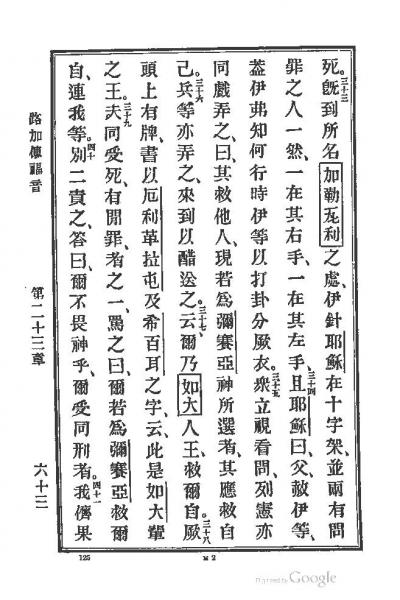 死。三十三既到所名加勒瓦利之處、伊針耶穌在十字架、並兩有問
罪之人一然、一在其右手、一在其左手、三十四且耶穌曰、父赦伊等、
蓋伊弗知何行時伊等以打卦分厥衣。三十五衆立視看間、列憲亦
同戲弄之、曰、其救他人、現若爲彌賽亞神所選者、其應救自
己。三十六兵等亦弄之、來到以醋送之。三十七云、爾乃如大人王、救爾自。三十八厥
頭上有牌、書以厄利革拉屯及希百耳之字、云、此是如大輩
之王。三十九夫同受死、有問罪者之一、罵之曰、爾若爲彌賽亞救爾
自、連我等。四十別二責之、答曰、爾不畏神乎、爾受同刑者。四十一我儕果
路加傳福音
第二十三章
六十三
125
M 2
Digitized by Google